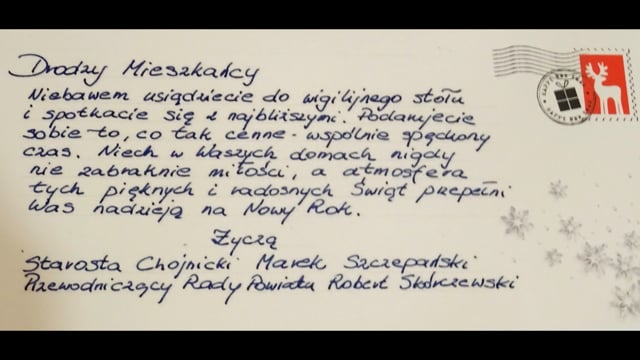 Drodzy Mieszkańcy
Niebawem usiądziecie do wigilijnego stołu
i spotkacie się z najbliższymi. Podarujecie
sobie to, co tak cenne - wspólnie spędzony
czas. Niech w Waszych domach nigdy
nie zabraknie miłości, a atmosfera
tych pięknych i radosnych Świąt przepełni
Was nadzieją na Nowy Rok.
Życzą
Starosta Chojnicki Marek Szczepański
Przewodniczący Rady Powiatu Robert Skórczewski